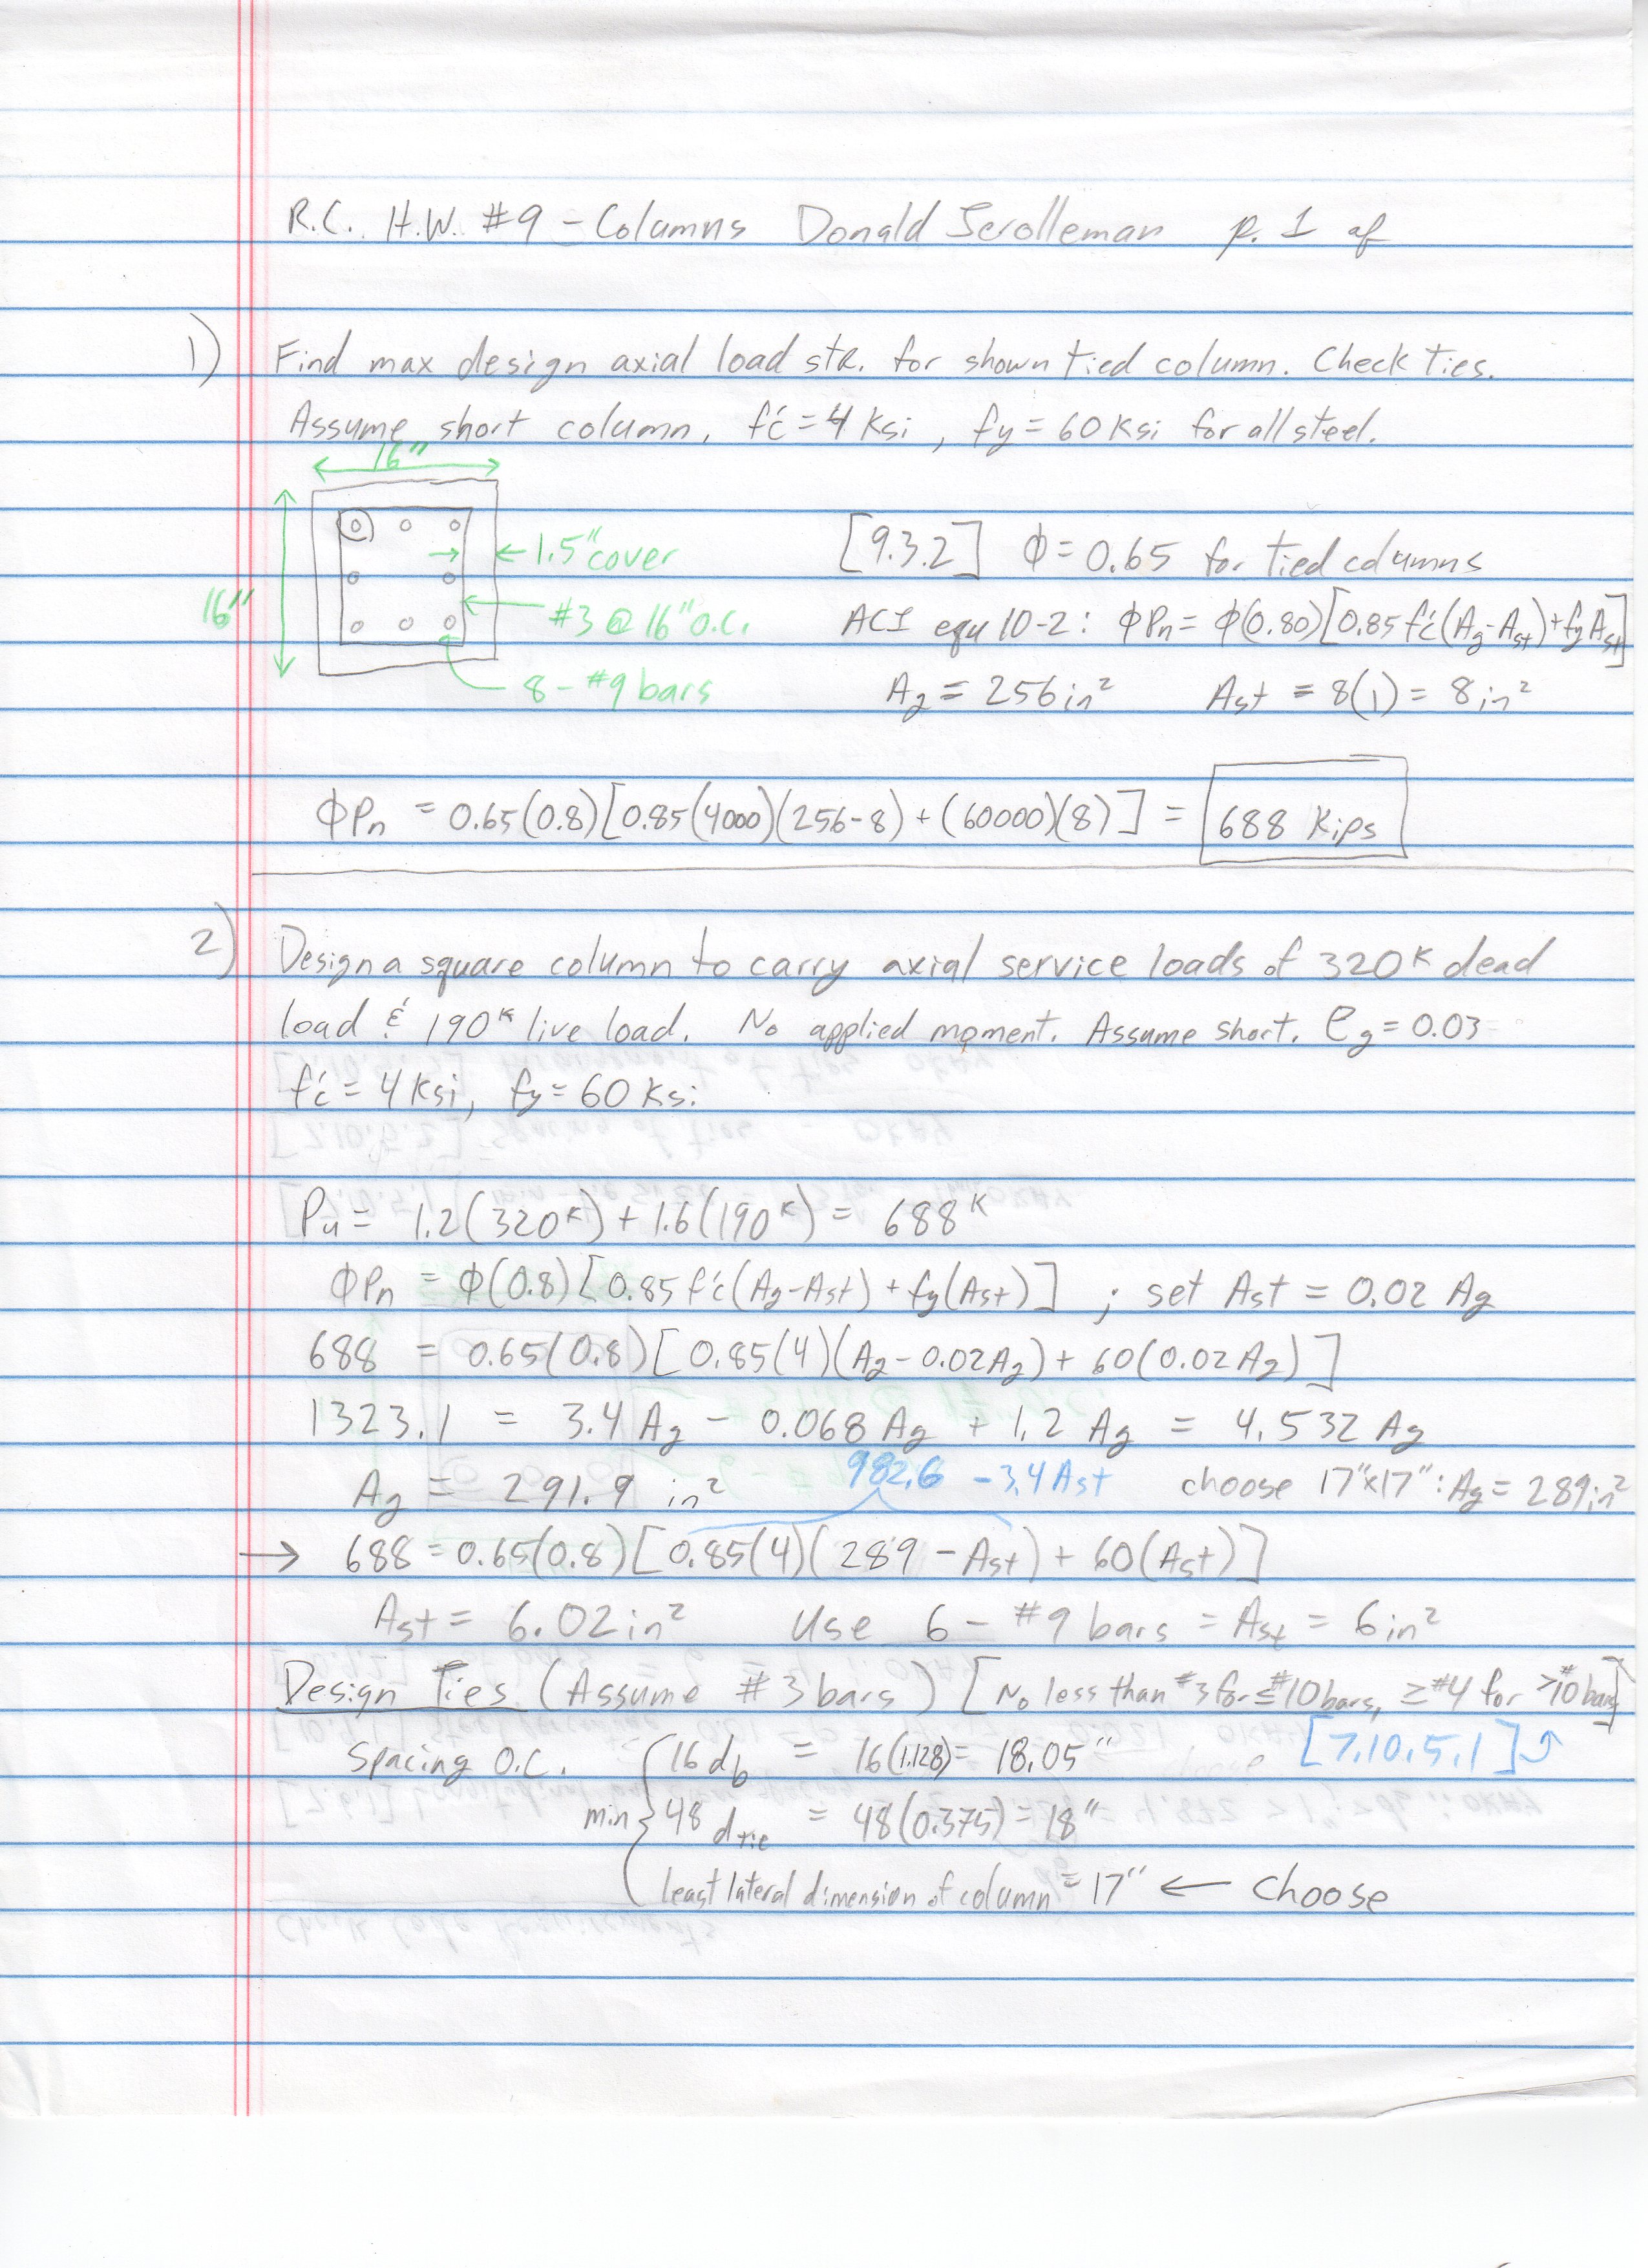 R.C. H.W. #9 - Columns Donald Scrolleman p. 1 of
1) Find max design axial load str. for shown tied column. Check ties.
Assume short column, f'c = 4 Ksi, fy = 60 Ksi for all steel.
16"
16"
1.5" cover
#3 @ 16" O.C.
8 - #9 bars
[9.3.2] Φ = 0.65 for tied columns
ACI equ 10-2: ΦPn = Φ(0.80)[0.85 f'c (Ag - Ast) + fy Ast]
Ag = 256 in² Ast = 8(1) = 8 in²
ΦPn = 0.65(0.8)[0.85(4000)(256-8) + (60000)(8)] = 688 Kips
2) Design a square column to carry axial service loads of 320ᴷ dead
load & 190ᴷ live load. No applied moment. Assume short. ρg = 0.03
f'c = 4 Ksi, fy = 60 Ksi
Pu = 1.2(320ᴷ) + 1.6(190ᴷ) = 688ᴷ
ΦPn = Φ(0.8)[0.85 f'c (Ag-Ast) + fy(Ast)] ; set Ast = 0.02 Ag
688 = 0.65(0.8)[0.85(4)(Ag - 0.02Ag) + 60(0.02Ag)]
1323.1 = 3.4 Ag - 0.068 Ag + 1.2 Ag = 4.532 Ag
Ag = 291.9 in² 982.6 - 3.4 Ast choose 17"x17": Ag = 289 in²
→ 688 = 0.65(0.8)[0.85(4)(289 - Ast) + 60(Ast)]
Ast = 6.02 in² Use 6 - #9 bars = Ast = 6 in²
Design Ties (Assume #3 bars) [No less than #3 for ≤ #10 bars, ≥ #4 for > #10 bars]
Spacing O.C. 16 db = 16(1.128) = 18.05" [7.10.5.1]
min 48 dtie = 48(0.375) = 18"
least lateral dimension of column = 17" ← Choose